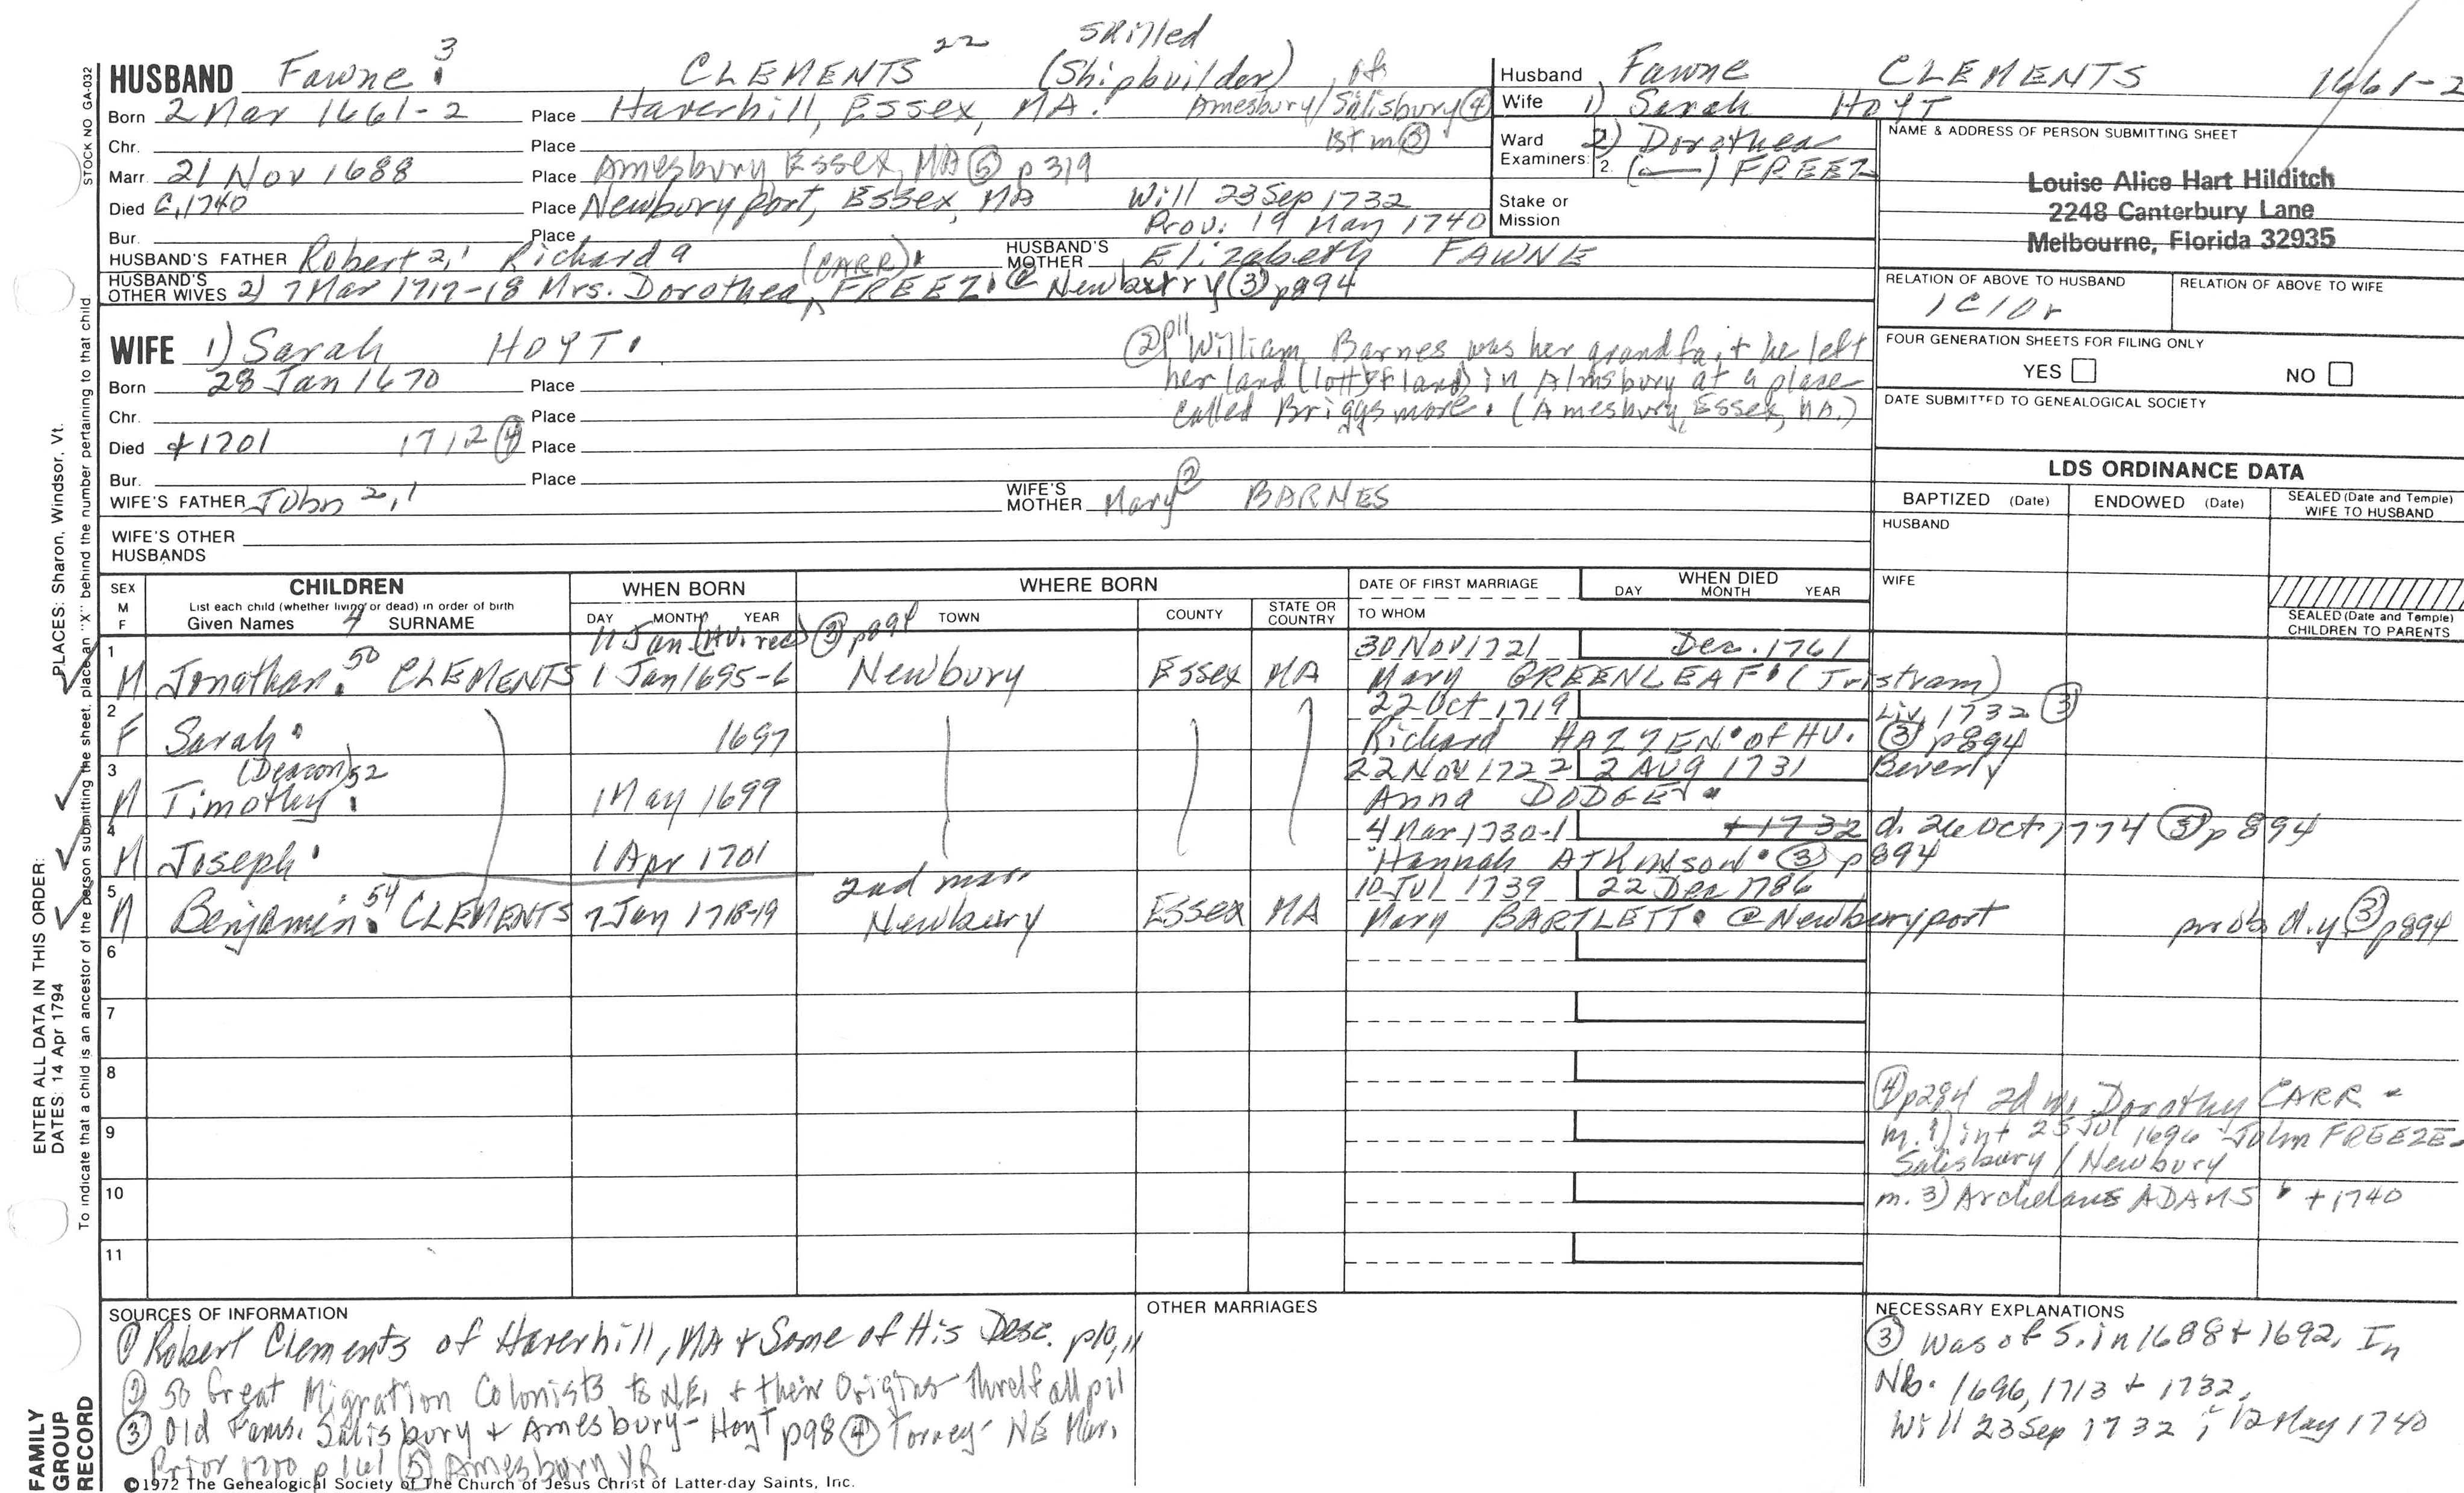 HUSBAND Fawne 3 CLEMENTS 22 Skilled (Shipbuilder), of Amesbury/Salisbury ④
Born 2 Mar 1661-2 Place Haverhill, Essex, MA.
Chr. Place 1st m ③
Marr. 21 Nov 1688 Place Amesbury Essex, MA ⑤ p319
Died C,1740 Place Newburyport, Essex, MA Will 23 Sep 1732
Bur. Place Prov: 19 May 1740
HUSBAND'S FATHER Robert 2,1 Richard a HUSBAND'S MOTHER Elizabeth FAWNE
HUSBAND'S OTHER WIVES 2) 7 Mar 1717-18 Mrs. Dorothea (CARR) FREEZ @ Newbury ③ p894
Husband Fawne CLEMENTS 1661-2
Wife 1) Sarah HOYT
Ward 2) Dorothea
Examiners: 2. (—) FREEZ
Stake or Mission
NAME & ADDRESS OF PERSON SUBMITTING SHEET
Louise Alice Hart Hilditch
2248 Canterbury Lane
Melbourne, Florida 32935
RELATION OF ABOVE TO HUSBAND RELATION OF ABOVE TO WIFE
1C10r
FOUR GENERATION SHEETS FOR FILING ONLY
YES NO
DATE SUBMITTED TO GENEALOGICAL SOCIETY
WIFE 1) Sarah HOYT
Born 28 Jan 1670 Place
Chr. Place
Died +1701 1712 ④ Place
Bur. Place
② p11 William Barnes was her grandfa. + he left
her land (lott of land) in Almsbury at a place
called Briggsmore. (Amesbury, Essex, MA.)
WIFE'S FATHER John 2,1 WIFE'S MOTHER Mary ② BARNES
WIFE'S OTHER HUSBANDS
LDS ORDINANCE DATA
BAPTIZED (Date) ENDOWED (Date) SEALED (Date and Temple) WIFE TO HUSBAND
HUSBAND
WIFE
SEALED (Date and Temple) CHILDREN TO PARENTS
SEX M F CHILDREN WHEN BORN WHERE BORN DATE OF FIRST MARRIAGE WHEN DIED
List each child (whether living or dead) in order of birth
Given Names 4 SURNAME DAY MONTH YEAR TOWN COUNTY STATE OR COUNTRY TO WHOM DAY MONTH YEAR
11 Jan (HV. rec) ③ p894
1 M Jonathan 50 CLEMENTS 1 Jan 1695-6 Newbury Essex MA 30 Nov 1721 Dec. 1761
Mary GREENLEAF (Tristram)
2 F Sarah 1697 22 Oct 1719 Liv. 1732 ③
Richard HAZZEN of HV. ③ p894
3 M (Deacon) 52 Timothy 1 May 1699 22 Nov 1722 2 AUG 1731 Beverly
Anna DODGE
4 M Joseph 1 Apr 1701 4 Mar 1730-1 +1732 d. 26 Oct 1774 ③ p894
Hannah ATKINSON ③ p894
5 M Benjamin 54 CLEMENTS 7 Jan 1718-19 2nd mar. Newbury Essex MA 10 Jul 1739 22 Dec 1786
Mary BARTLETT @ Newburyport prob. d.y. ③ p894
6
7
8
9
10
11
④ p284 2d w. Dorothy CARR -
m. 1) int 25 Jul 1696 John FREEZE-
Salisbury / Newbury
m. 3) Archelaus ADAMS +1740
SOURCES OF INFORMATION
① Robert Clements of Haverhill, MA + Some of His Desc. p10, 11
② 50 Great Migration Colonists to N.E. + their Origins Threlfall p11
③ Old Fams. Salisbury + Amesbury - Hoyt p98 ④ Torrey - NE Mar.
Prior 1700 p161 ⑤ Amesbury VR
OTHER MARRIAGES
NECESSARY EXPLANATIONS
③ Was of S. in 1688 + 1692. In
Nb. 1696, 1713 + 1732.
Will 23 Sep 1732; 12 May 1740
©1972 The Genealogical Society of The Church of Jesus Christ of Latter-day Saints, Inc.
STOCK NO GA-032
To indicate that a child is an ancestor of the person submitting the sheet, place an "X" behind the number pertaining to that child
PLACES: Sharon, Windsor, Vt.
ENTER ALL DATA IN THIS ORDER:
DATES: 14 Apr 1794
FAMILY GROUP RECORD